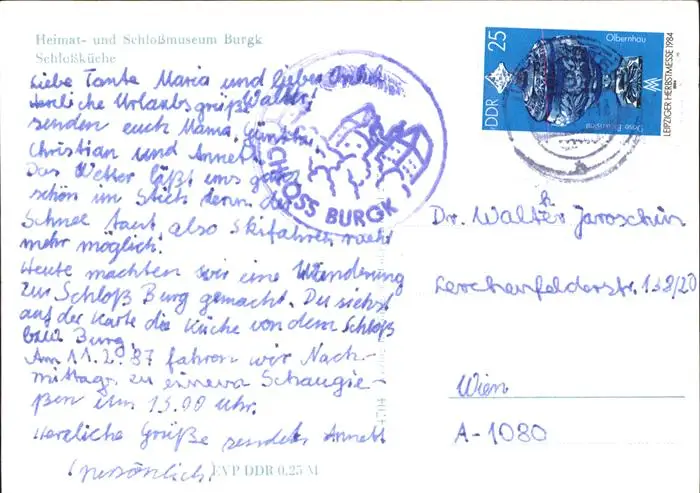 Heimat- und Schloßmuseum Burgk
Schloßküche
Liebe Tante Maria und lieber Onkel
Walter!
Herzliche Urlaubsgrüße
senden euch Mama, Günther,
Christian und Annett.
Das Wetter läßt uns ganz
schön im Stich, denn der
Schnee taut, also Skifahren nicht
mehr möglich!
Heute machten wir eine Wanderung
zur Schloß Burg gemacht. Du siehst
auf der Karte die Küche von dem Schloß
bzw Burg.
Am 11.2.87 fahren wir Nach-
mittags zu einem Schaugie-
ßen um 15.00 Uhr.
Herzliche Grüße sendet Annett
(persönlich)
EVP DDR 0,25 M
4704
SCHLOSS BURGK
25
DDR
Olbernhau
LEIPZIGER HERBSTMESSE 1984
Dr. Walter Jaroschin
h
Lerchenfelderstr. 138/20
Wien
A-1080